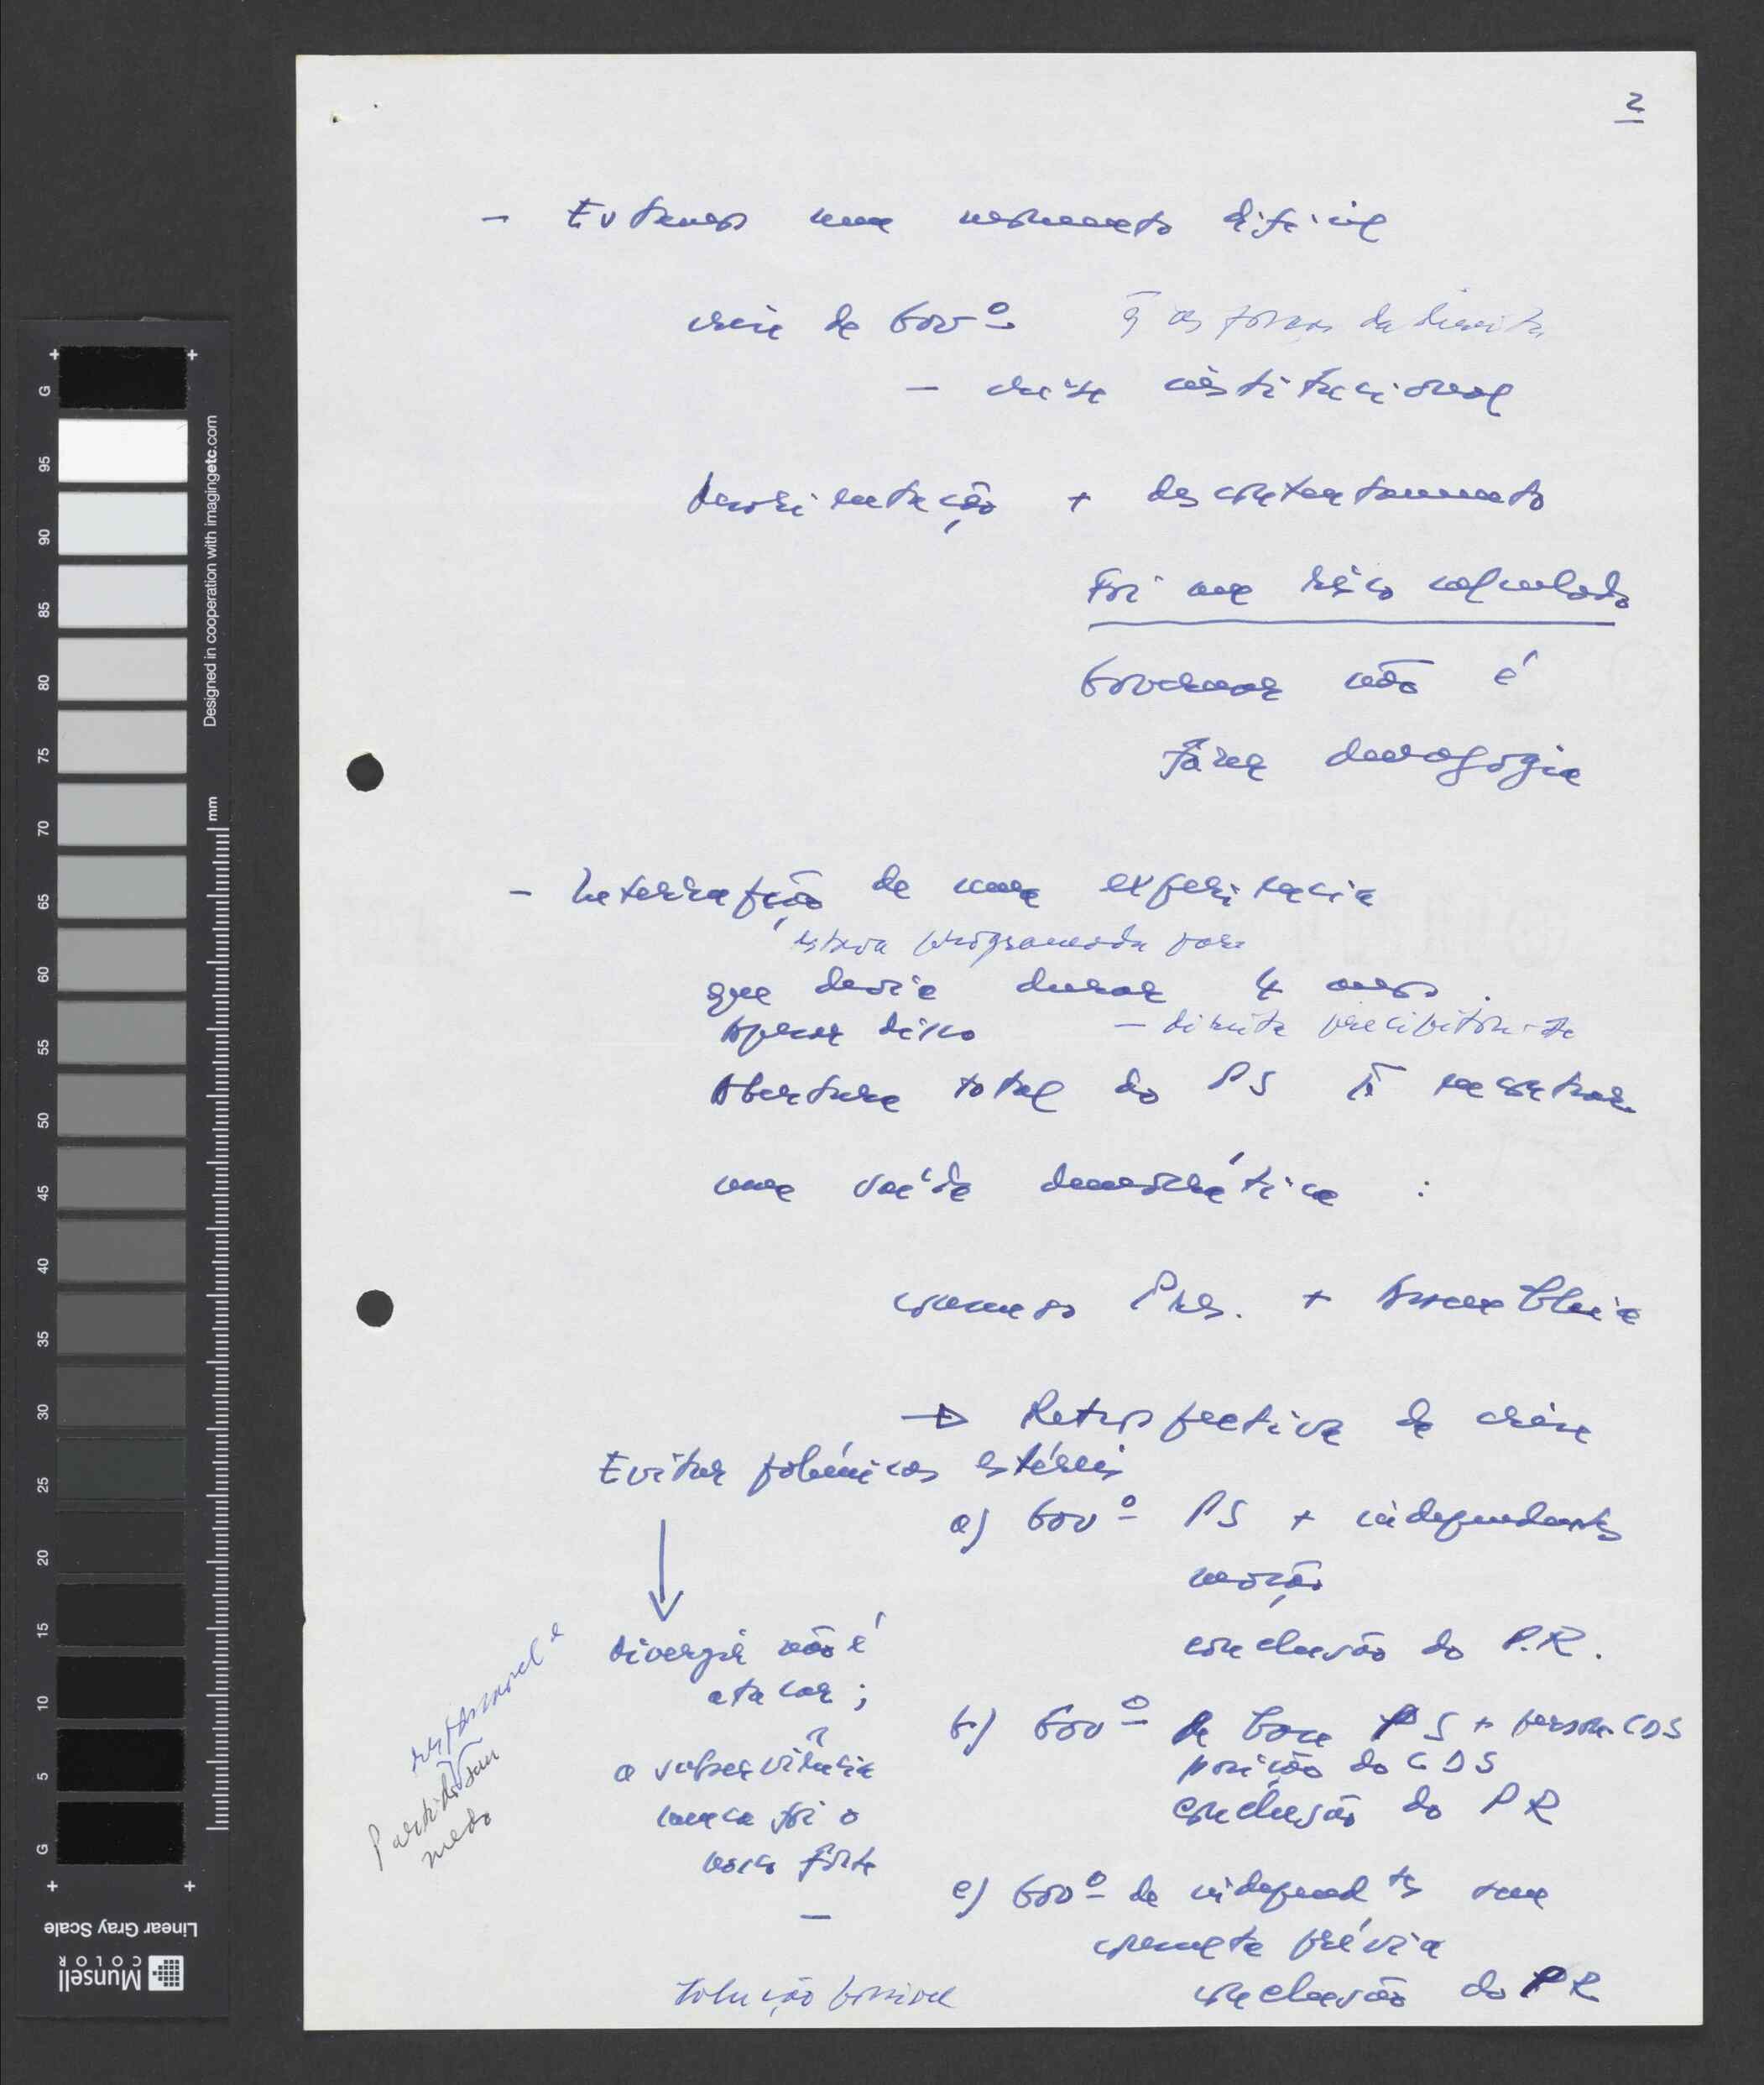 2
- Estamos num momento difícil
crise de Govº q as forças da direita
- crise institucional
desorientação + descontentamento
Foi um risco calculado
Governar não é
fazer demagogia
- Interrupção de uma experiência
estava programada para
que devia durar 4 anos.
Apesar disso - direita precipitou-se
Abertura total do PS p/ encontrar
uma saída democrática :
connosco Pres. + Assembleia
→ Retrospectiva da crise
Evitar polémicas estéreis
a) Govº PS + independentes
moção
conclusão do P.R.
Divergir não é
atacar ;
a subserviência
nunca foi o
nosso forte
-
responsável e
Partido sem
medo
b) Govº de base PS + person. CDS
posição do CDS
conclusão do PR
c) Govº de independtes sem
consulta prévia
conclusão do PR
Solução possível
Designed in cooperation with imagingetc.com
mm
G 95 90 85 80 75 70 65 60 55 50 45 40 35 30 25 20 15 10 5 G
Linear Gray Scale
Munsell
COLOR